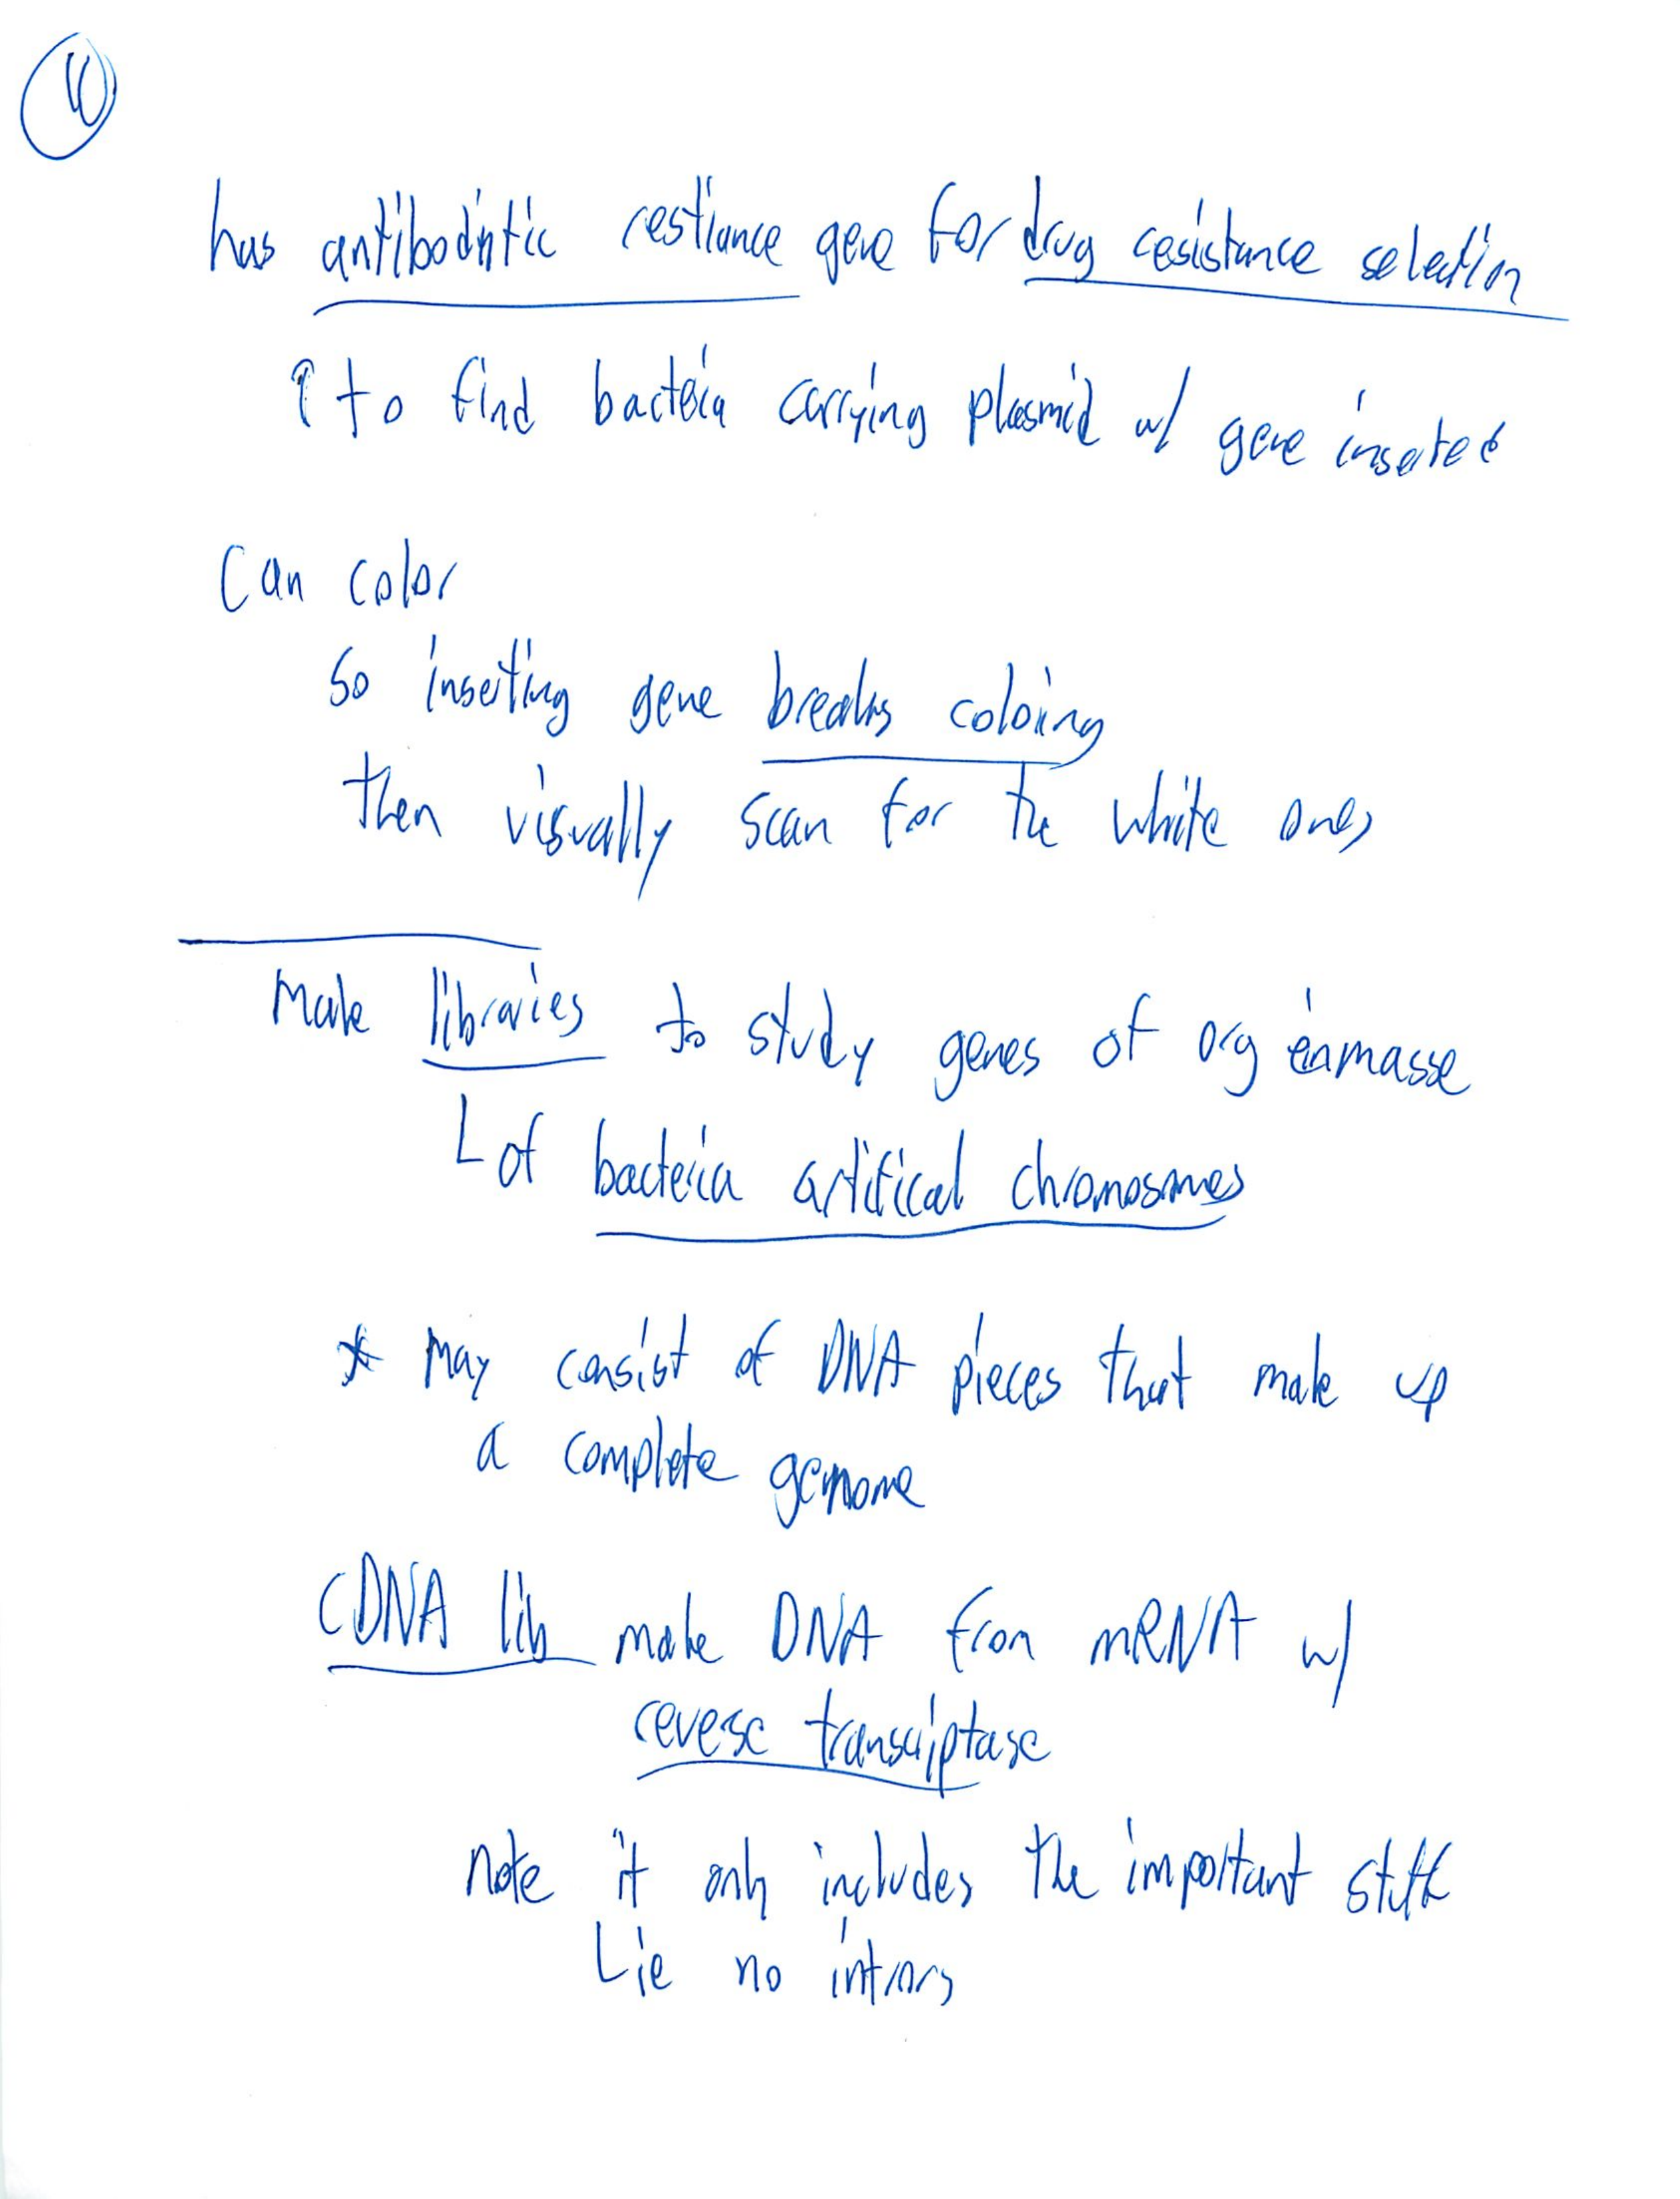 10
has antibodiotic restiance gene for drug resistance selection
↑ to find bacteria carrying plasmid w/ gene inserted
Can color
So inserting gene breaks coloring
then visually scan for the white ones
Make libraries to study genes of org enmasse
L of bacteria artifical chromosmes
* May consist of DNA pieces that make up
a complete genome
cDNA lib make DNA from mRNA w/
reverse transcriptase
Note it only includes the important stuff
L ie no introns